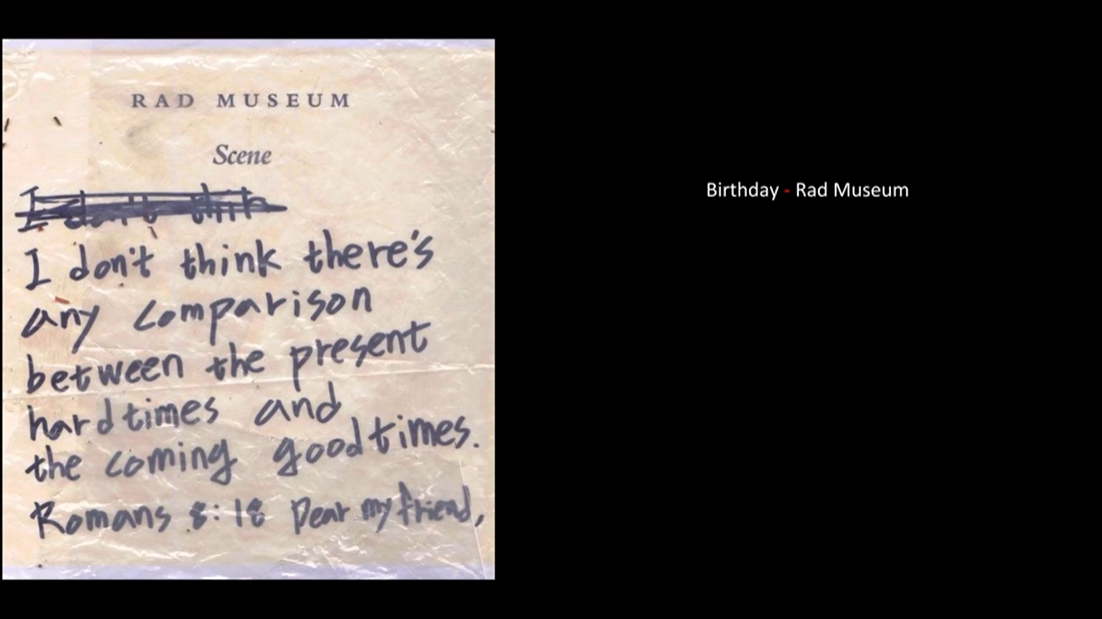 RAD MUSEUM
Scene
I don't think
I don't think there's
any comparison
between the present
hard times and
the coming good times.
Romans 8:18 Dear my friend,
Birthday - Rad Museum